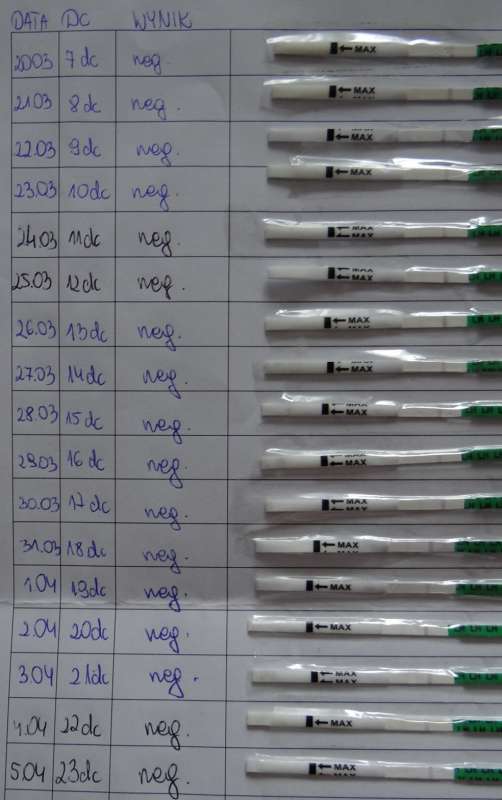 DATA DC WYNIK
20.03 7dc neg. MAX
21.03 8dc neg. MAX
22.03 9dc neg. MAX
23.03 10dc neg. MAX
24.03 11dc neg. MAX
25.03 12dc neg. MAX
26.03 13dc neg. MAX LH LH
27.03 14dc neg. MAX
28.03 15dc neg. MAX LH LH
29.03 16dc neg. MAX
30.03 17dc neg. MAX LH LH
31.03 18dc neg. MAX
1.04 19dc neg. MAX
2.04 20dc neg. MAX LH LH LH
3.04 21dc neg. MAX LH LH
4.04 22dc neg. MAX
5.04 23dc neg. MAX LH LH LH